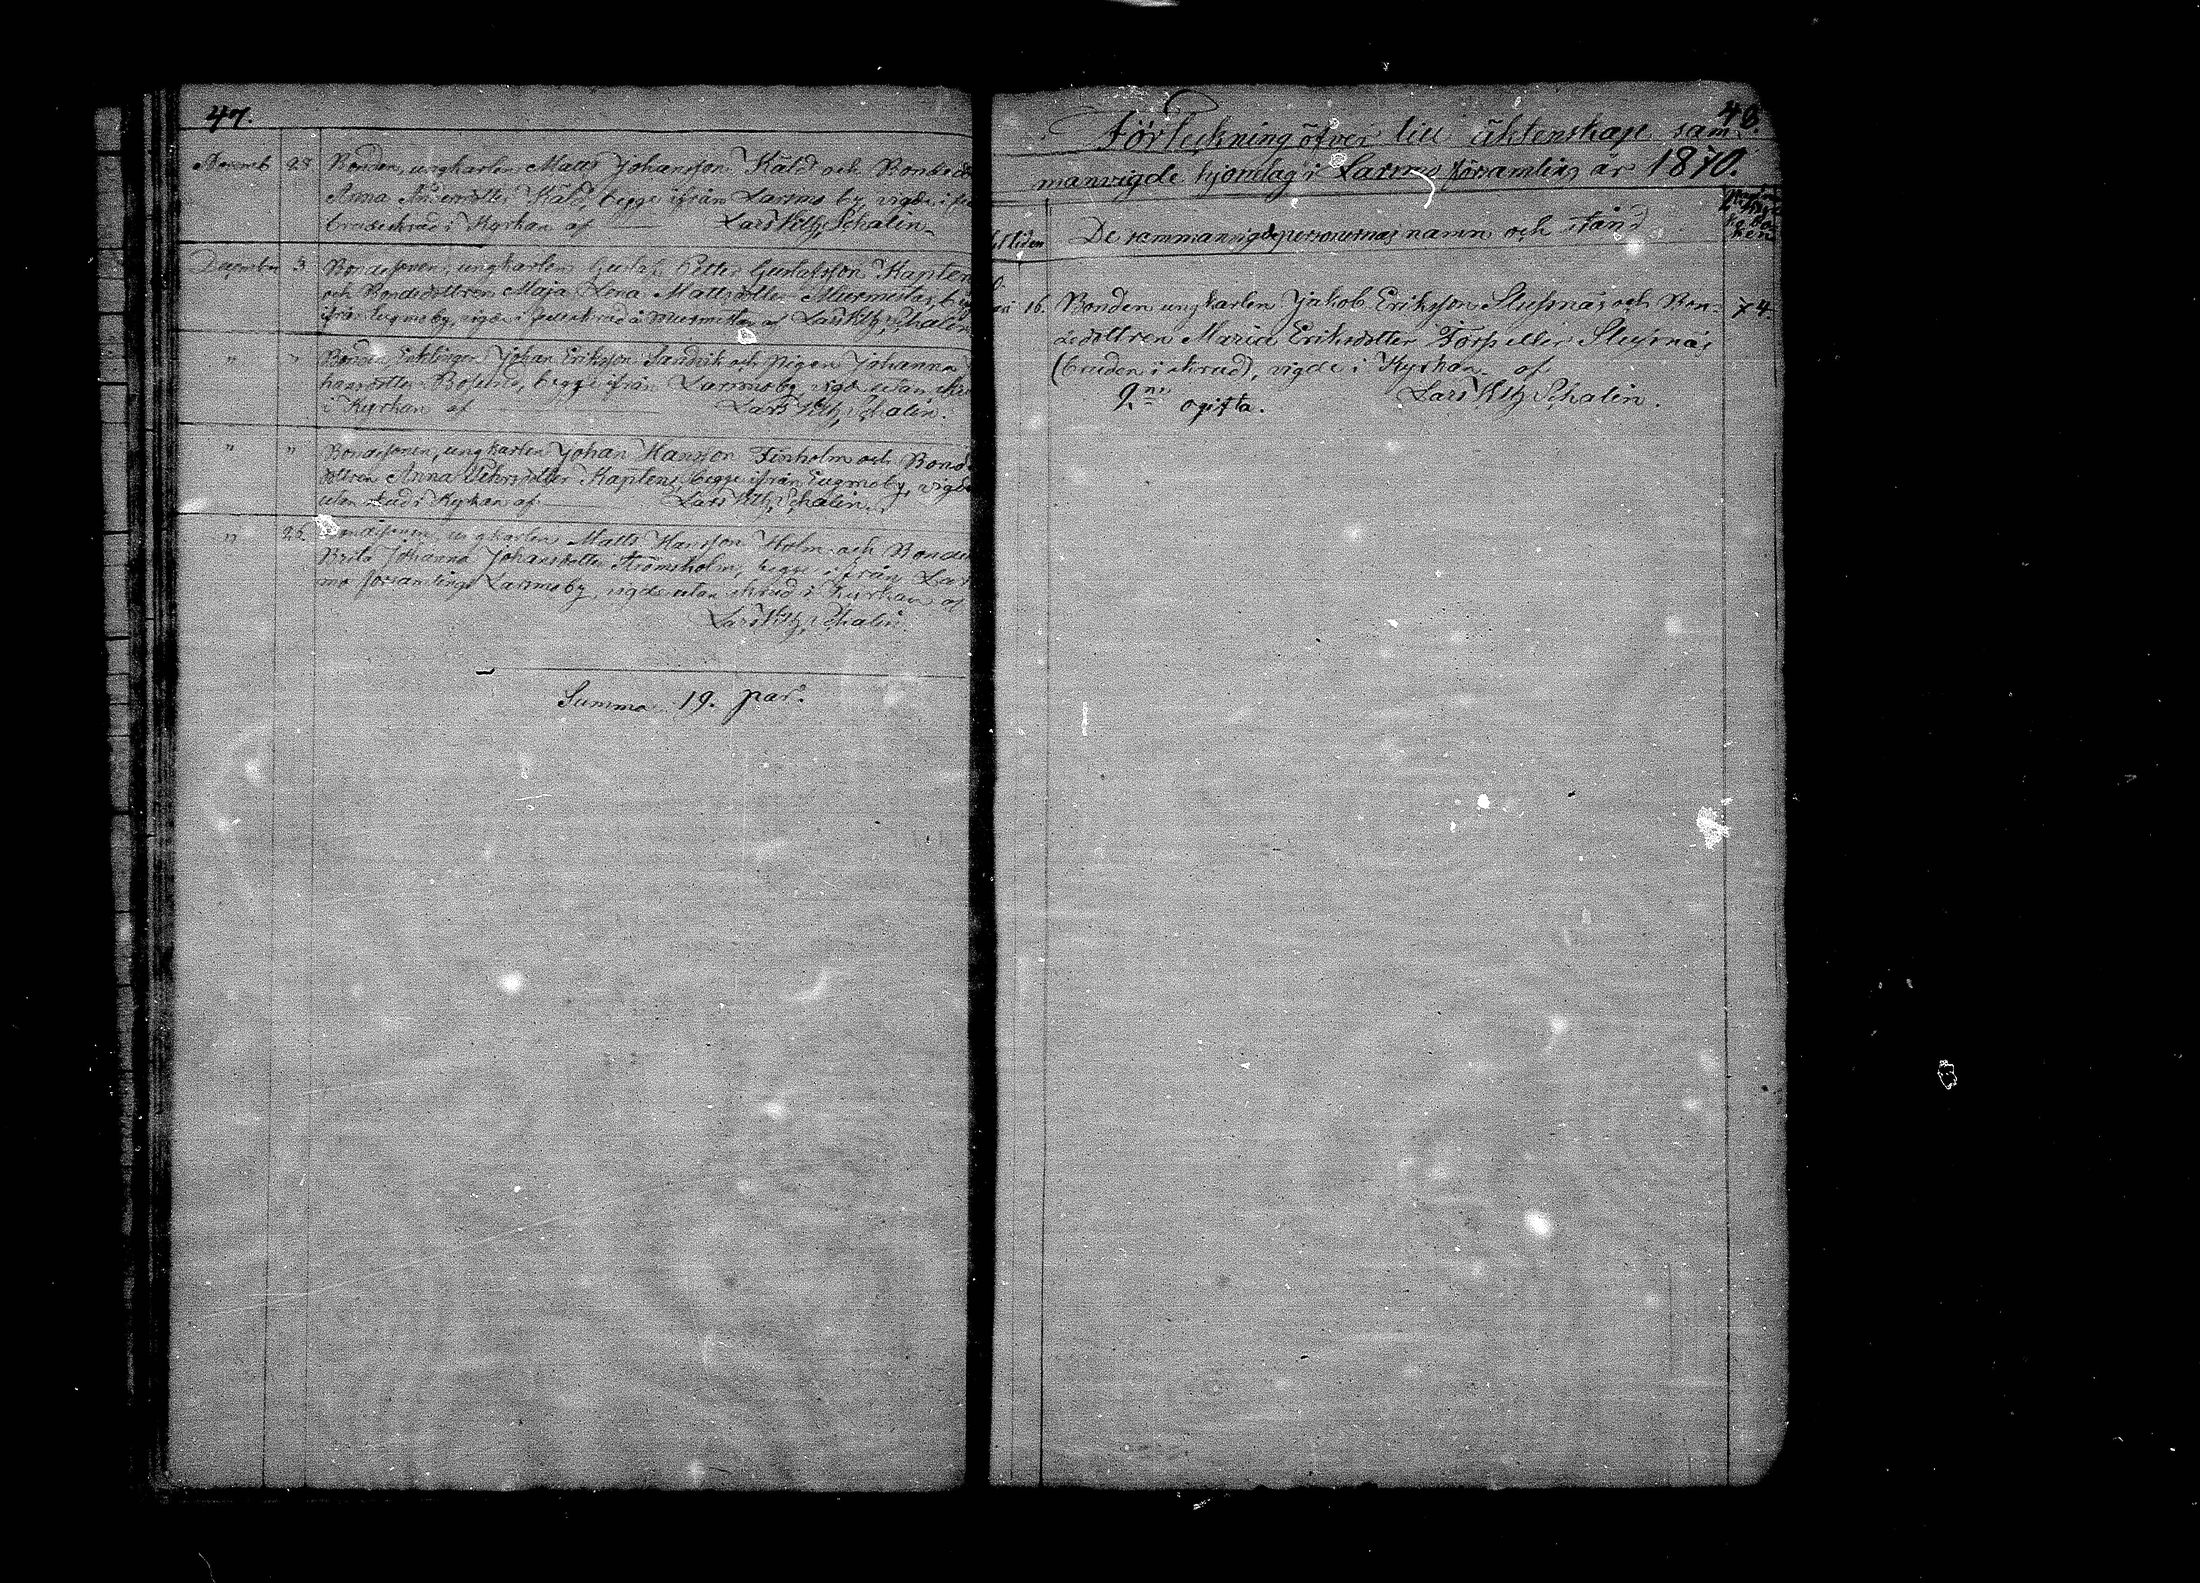 47.
Novemb. 28 Bonden, ungkarlen Matts Johansson Käld och Bondedo
Anna Andersdotter Käld, begge ifrån Larsmo by, vigde i
brudeskrud i Kyrkan af Lars Wilh. Schalin.
December 3 Bondesonen, ungkarlen Gustaf Petter Gustafsson Kapten
och Bondedottren Maja Lena Mattsdotter Murmestas,
ifrån Eugmo by, vigde i på Murmestas af Lars Wilh. Schalin
" " Bonde Enklingen Johan Eriksson Sandvik och pigan Johanna
hansdotter Bosund, begge ifrån Larsmo by, vigde utan skru
i Kyrkan af Lars Wilh. Schalin.
" " Bondesonen, ungkarlen Johan Hansson Finholm och Bonde
dottren Anna Kapten, begge ifrån Eugmo by, vigde
utan skrud i Kyrkan af Lars Wilh. Schalin.
" 26. Bondesonen, ungkarlen Matts Hansson Holm och Bonde
Brita Johanna Johansdotter Strömsholm, begge ifrån Lars
mo församlings Larsmo by, vigde utan skrud i Kyrkan af
Lars Wilh. Schalin.
Summa 19. par.
48.
Förteckning öfver till äktenskap sam-
manvigde hjonelag i Larsmo församling år 1870.
tiden De sammanvigde personernas namn och stånd
16. Bonden ungkarlen Jakob Eriksson Slussnäs och Bon- 74.
dedottren Maria Eriksdotter Torp eller Slussnäs
(bruden i skrud), vigde i Kyrkan af
2ne ogifta. Lars Wilh. Schalin.